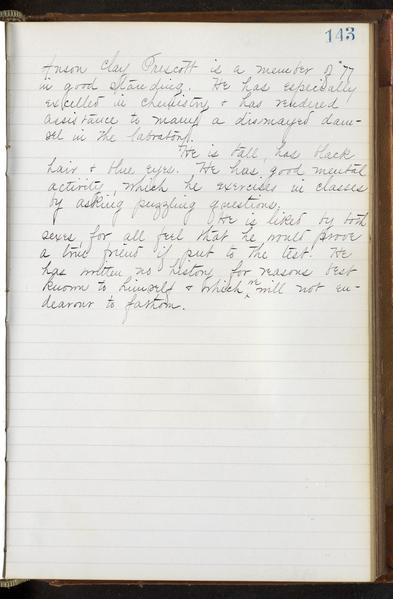 143
Anson Clay Prescott is a member of '77
in good standing. He has especially
excelled in chemistry & has rendered
assistance to many a dismayed dam-
sel in the labratory.
He is tall, has black
hair & blue eyes. He has good mental
activity, which he exercises in classes
by asking puzzling questions.
He is liked by both
sexes, for all feel that he would prove
a true friend if put to the test. He
has written no history for reasons best
known to himself & which we will not en-
deavour to fathom.